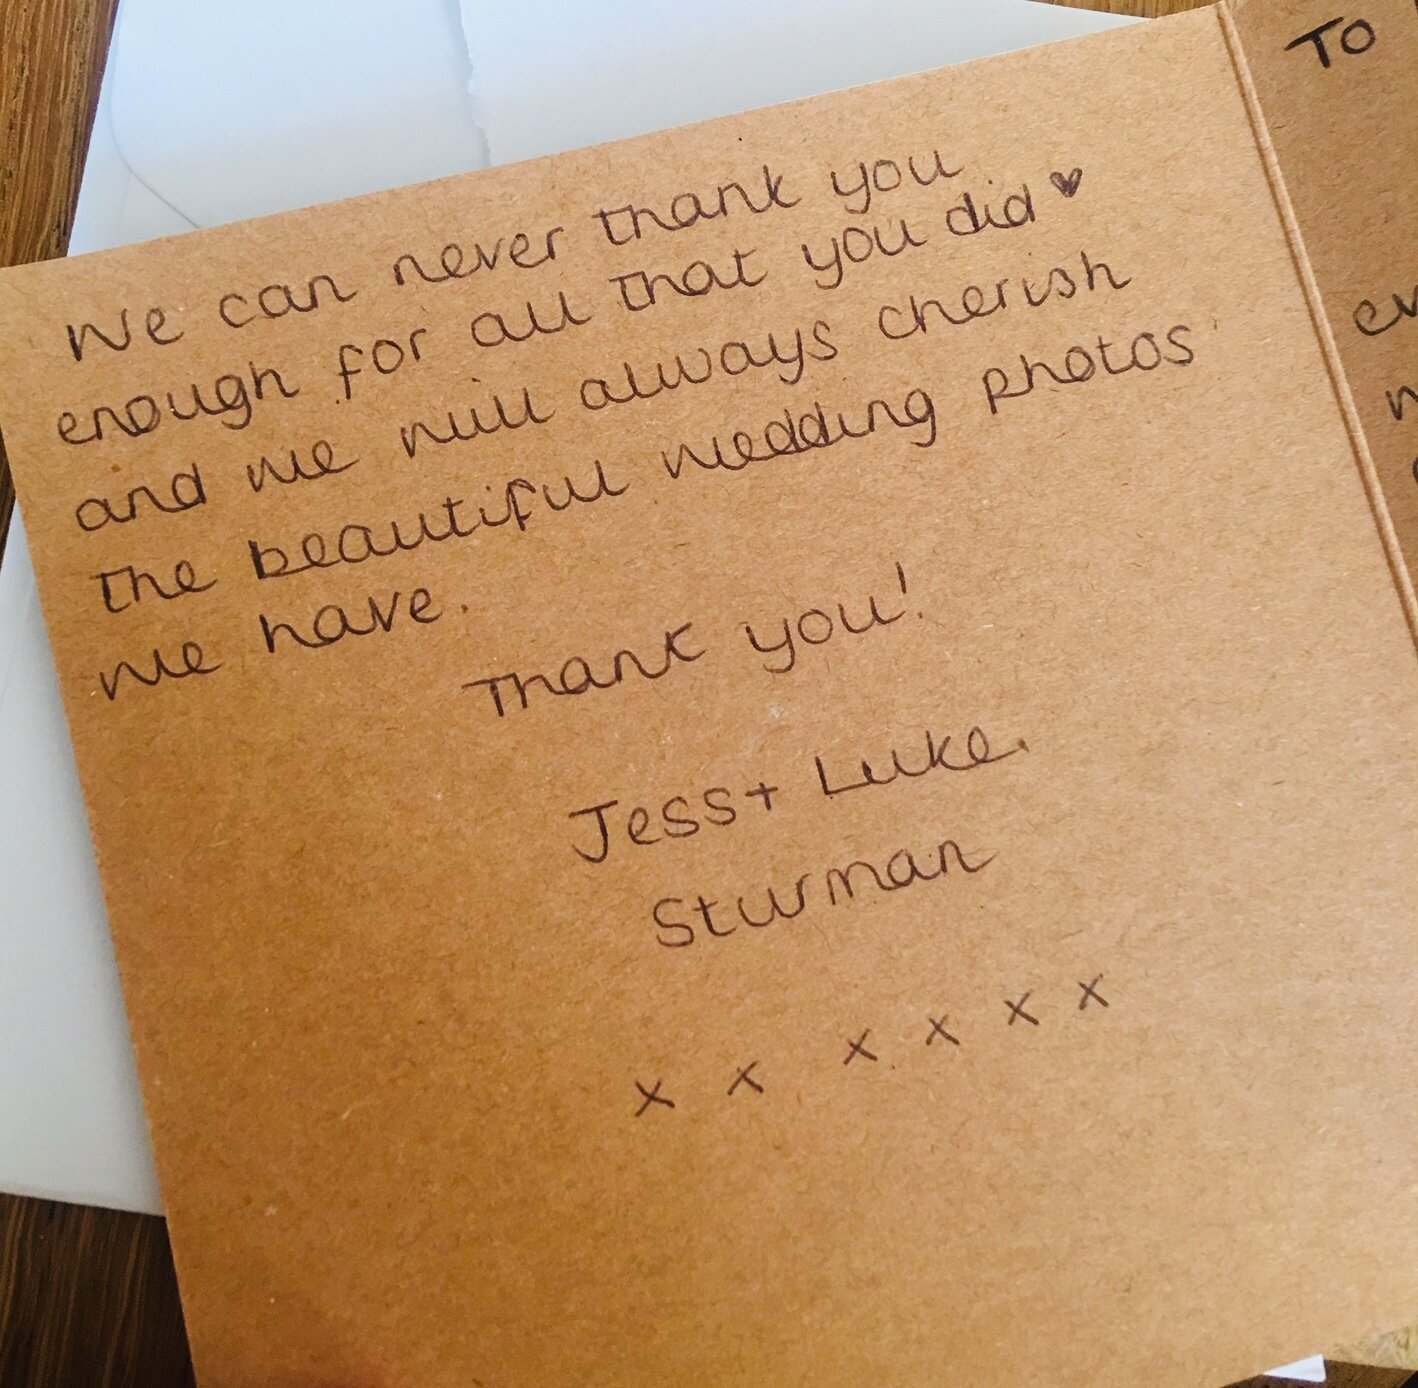 We can never thank you
enough for all that you did ♥
and we will always cherish
the beautiful wedding photos
we have.
Thank you!
Jess + Luke.
Sturman
x x x x x x
To